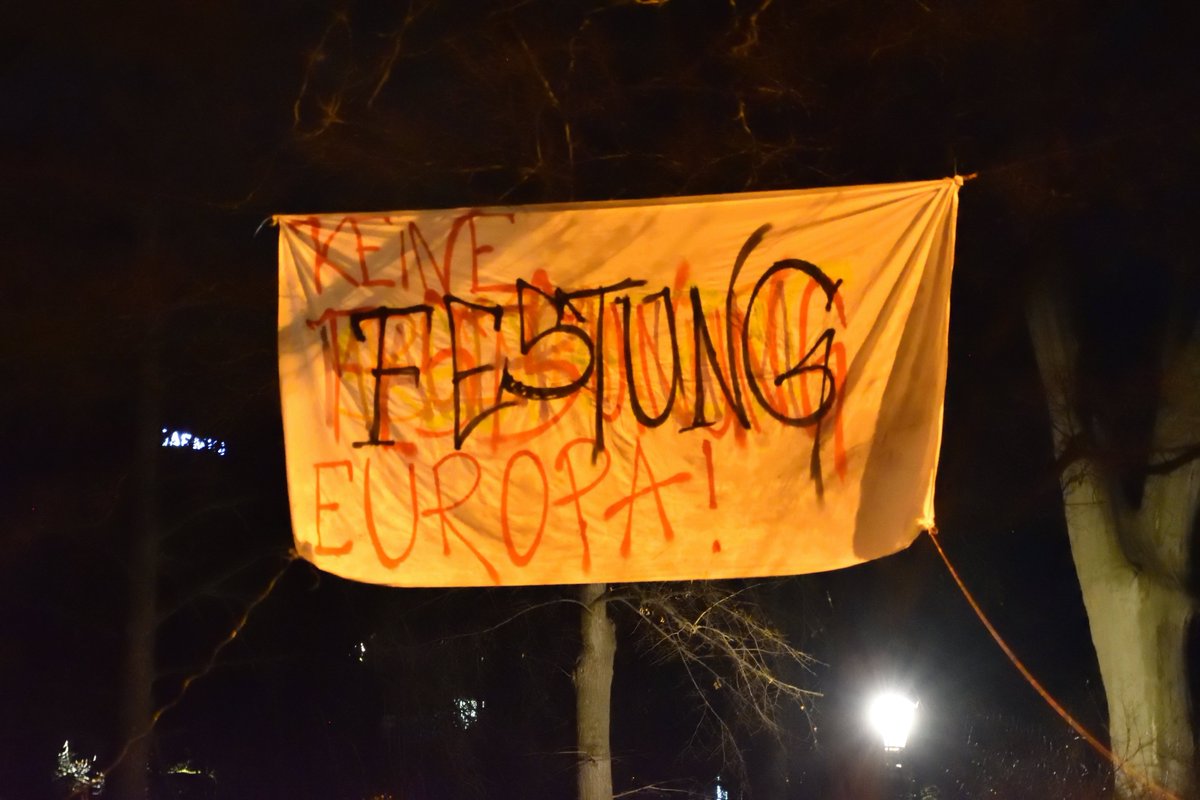 KEINE
FESTUNG
EUROPA!